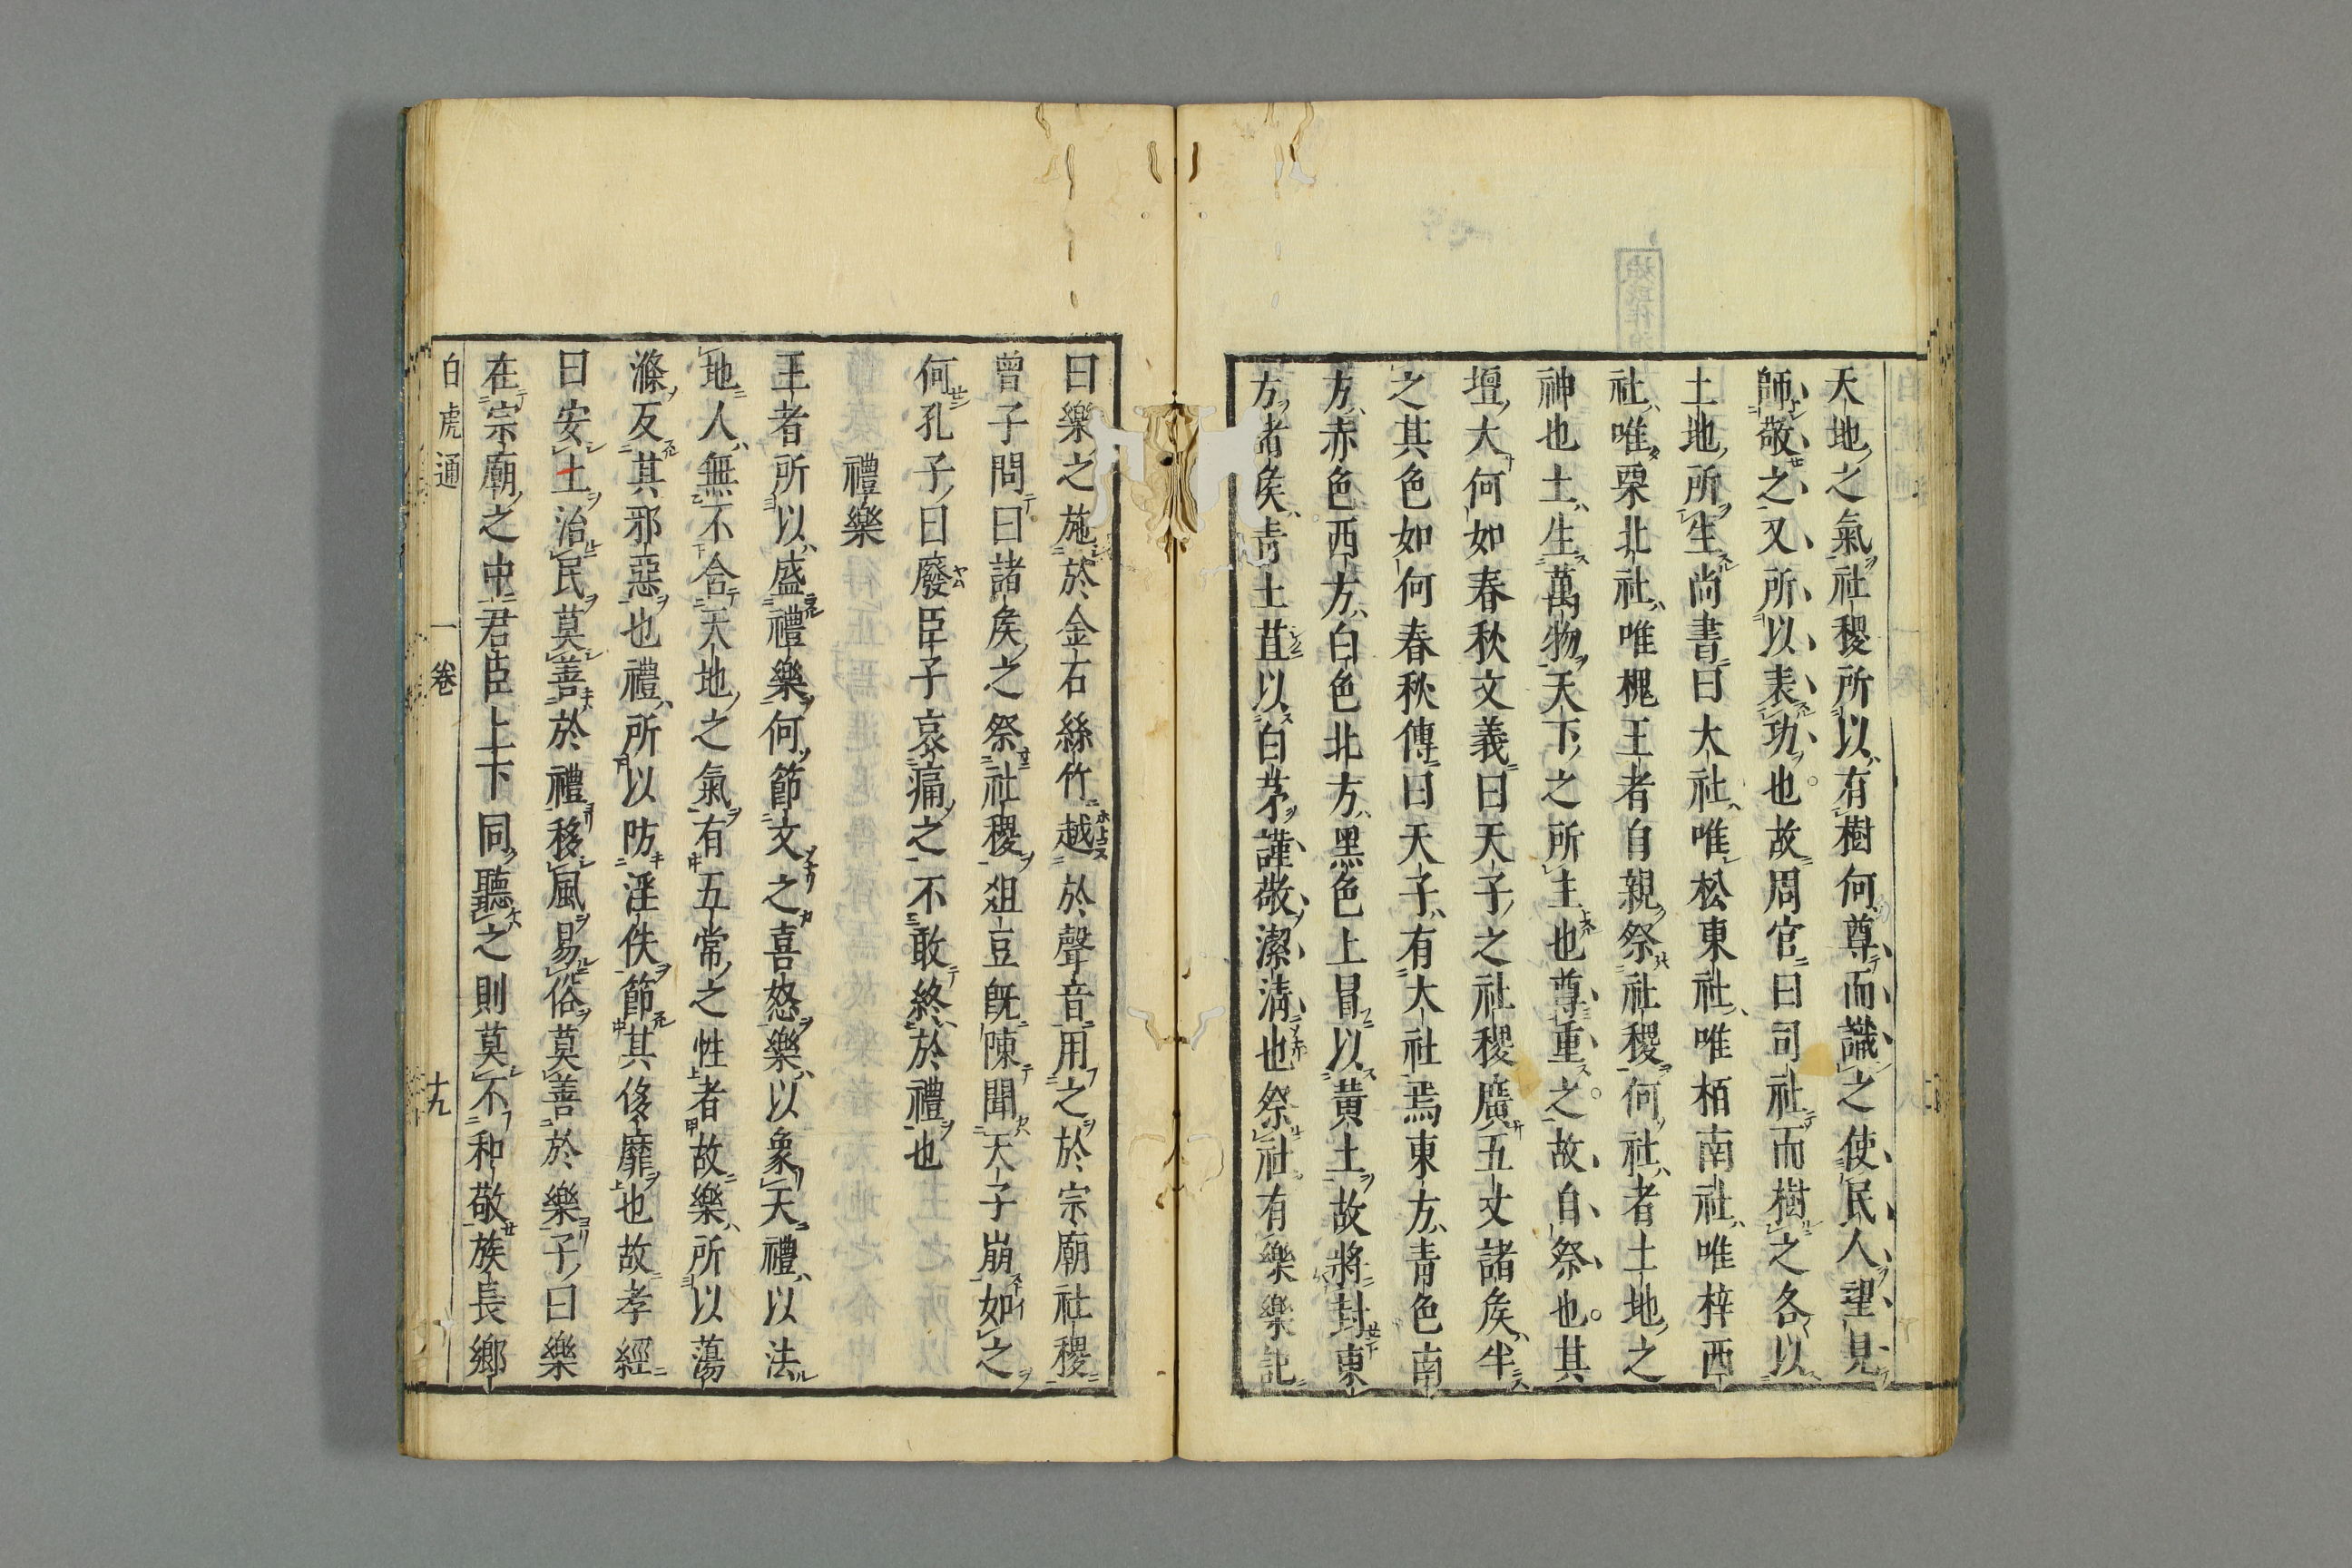 天地之氣社稷所以有樹何尊而識之使民人望見
師敬之又所以表功也故周官曰司社而樹之各以
土地所生尚書曰大社唯松東社唯栢南社唯梓西
社唯栗北社唯槐王者自親祭社稷何社者土地之
神也土生萬物天下之所主也尊重之故自祭也其
壇大何如春秋文義曰天子之社稷廣五丈諸矦半
之其色如何春秋傳曰天子有大社焉東方青色南
方赤色西方白色北方黑色上冒以黃土故將封東
方諸矦青土苴以白茅謹敬潔清也祭社有樂樂記
曰樂之施於金石絲竹越於聲音用之於宗廟社稷
曾子問曰諸矦之祭社稷俎豆旣陳聞天子崩如之
何孔子曰廢臣子哀痛之不敢終於禮也
禮樂
王者所以盛禮樂何節文之喜怒樂以象天禮以法
地人無不含天地之氣有五常之性者故樂所以蕩
滌反其邪惡也禮所以防淫佚節其侈靡也故孝經
曰安土治民莫善於禮移風易俗莫善於樂子曰樂
在宗廟之中君臣上下同聽之則莫不和敬族長鄉
白虎通 一卷 十九